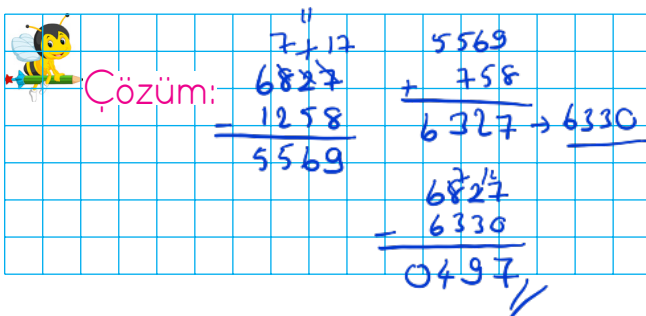 Çözüm:
11
7 1 17
6827
- 1258
5569
5569
+ 758
6327 → 6330
7 12
6827
- 6330
0497 //